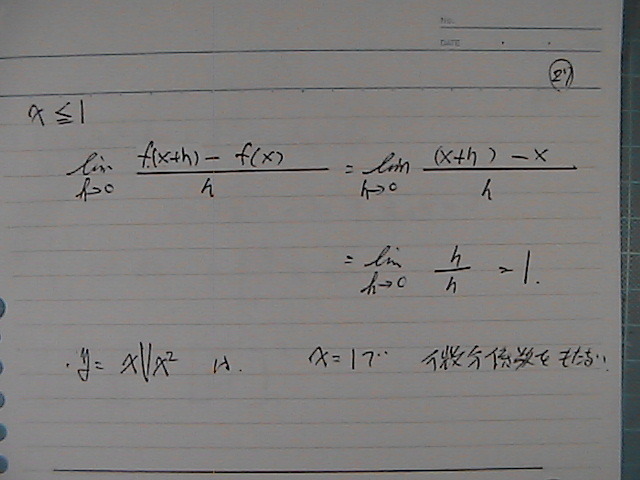 No.
DATE
27
x ≦ 1
lim h→0 f(x+h) − f(x) / h = lim h→0 (x+h) − x / h
= lim h→0 h / h = 1.
・y = x\\x² は. x=1で 微分係数をもたない.